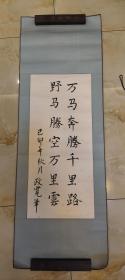 万马奔腾千里路
野马腾空万里雲
己卯年秋月
政宽笔